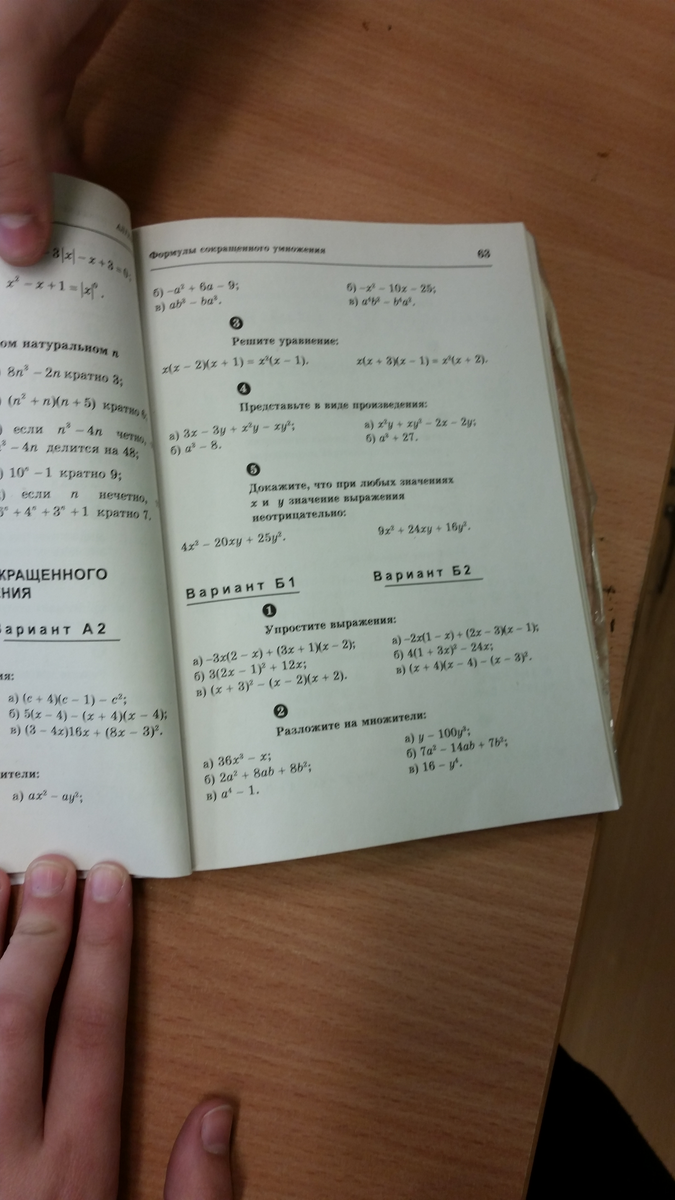 -3|x| - x + 3 = 0.
x² - x + 1 = |x|⁰.
ом натуральном n
8n³ - 2n кратно 3;
(n² + n)(n + 5) кратно 6;
если n³ - 4n четно,
³ - 4n делится на 48;
10ⁿ - 1 кратно 9;
если n нечетно,
ⁿ + 4ⁿ + 3ⁿ + 1 кратно 7.
КРАЩЕННОГО
НИЯ
Вариант А2
ия:
а) (c + 4)(c - 1) - c²;
б) 5(x - 4) - (x + 4)(x - 4);
в) (3 - 4x)16x + (8x - 3)².
ители:
а) ax² - ay²;
Формулы сокращенного умножения 63
б) -a² + 6a - 9; б) -x² - 10x - 25;
❸
Решите уравнение:
x(x - 2)(x + 1) = x²(x - 1). x(x + 3)(x - 1) = x²(x + 2).
❹
Представьте в виде произведения:
а) 3x - 3y + x²y - xy²; а) x²y + xy² - 2x - 2y;
б) a³ - 8. б) a³ + 27.
❺
Докажите, что при любых значениях
x и y значение выражения
неотрицательно:
4x² - 20xy + 25y². 9x² + 24xy + 16y².
Вариант Б1 Вариант Б2
❶
Упростите выражения:
а) -3x(2 - x) + (3x + 1)(x - 2); а) -2x(1 - x) + (2x - 3)(x - 1);
б) 3(2x - 1)² + 12x; б) 4(1 + 3x)² - 24x;
в) (x + 3)² - (x - 2)(x + 2). в) (x + 4)(x - 4) - (x - 3)².
❷
Разложите на множители:
а) 36x³ - x; а) y - 100y³;
б) 2a² + 8ab + 8b²; б) 7a² - 14ab + 7b²;
в) a⁴ - 1. в) 16 - y⁴.